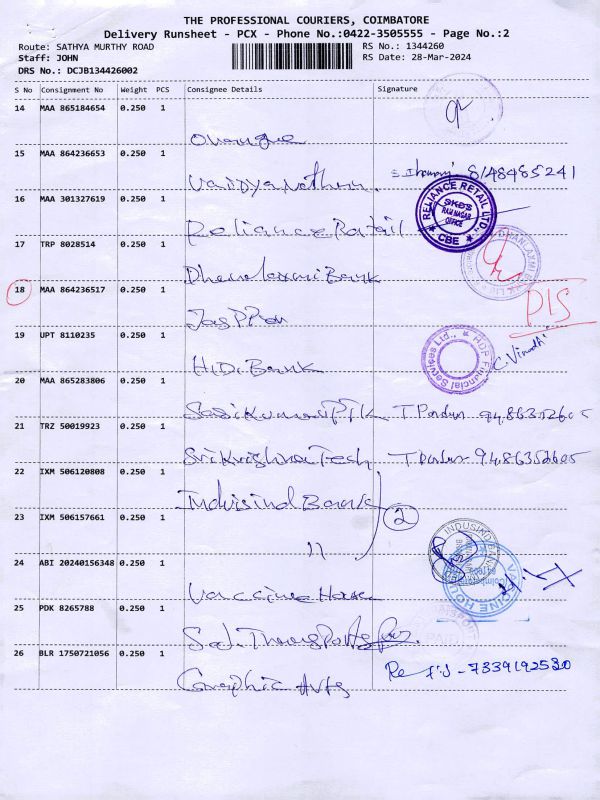 THE PROFESSIONAL COURIERS, COIMBATORE
Delivery Runsheet - PCX - Phone No.:0422-3505555 - Page No.:2
Route: SATHYA MURTHY ROAD
RS No.: 1344260
Staff: JOHN
RS Date: 28-Mar-2024
DRS No.: DCJB134426002
S No Consignment No Weight PCS Consignee Details Signature
14 MAA 865184654 0.250 1
15 MAA 864236653 0.250 1
Vaidyanathan 8148485241
16 MAA 301327619 0.250 1
Reliance Retail
RELIANCE RETAIL LTD.
RAM NAGAR
OFFICE
CBE
17 TRP 8028514 0.250 1
Dhanalaxmi Bank
18 MAA 864236517 0.250 1
DIS
19 UPT 8110235 0.250 1
HDP Financial Services Ltd.,
C. Vinodhi
20 MAA 865283806 0.250 1
Sasikumar PTK
21 TRZ 50019923 0.250 1
Srikrishna Tech 9486352605
22 IXM 506120808 0.250 1
Indusind Bank
2
23 IXM 506157661 0.250 1
"
INDUSIND BANK
24 ABI 20240156348 0.250 1
Vaccine House
VACCINE HOUSE
Coimbatore
25 PDK 8265788 0.250 1
26 BLR 1750721056 0.250 1
Graphic Arts 7339192530